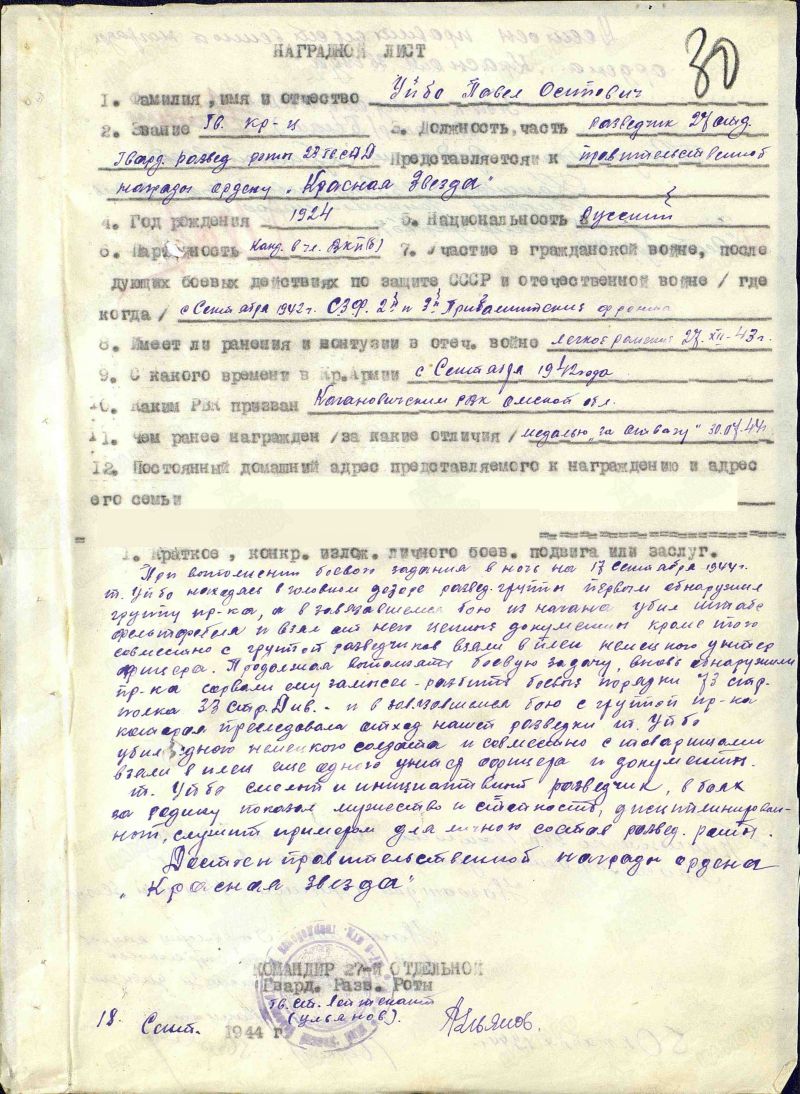 30
НАГРАДНОЙ ЛИСТ
1. Фамилия, имя и отчество Уйбо Павел Осипович
2. Звание Гв. кр-ц 3. Должность, часть разведчик 27 отд.
Гвард. развед роты 23 гв СД Представляется к правительственной
награды ордену „Красная Звезда"
4. Год рождения 1924 5. Национальность русский
6. Партийность Канд. в чл. ВКП(б) 7. Участие в гражданской войне, после
дующих боевых действиях по защите СССР и отечественной войне / где
когда / с Сентября 1942 г. СЗФ. 2й и 3й Прибалтийский фронта
8. Имеет ли ранения и контузии в отеч. войне легкое ранение 27-XII-43 г.
9. С какого времени в Кр.Армии с Сентября 1942 года
10. Каким РВК призван Кагановичским РВК Омской обл.
11. Чем ранее награжден /за какие отличия / медалью „за отвагу" 30.07.44 г.
12. Постоянный домашний адрес представляемого к награждению и адрес
его семьи
1. Краткое, конкр. излож. личного боев. подвига или заслуг.
При выполнении боевого задания в ночь на 17 сентября 1944 г.
т. Уйбо находясь в головном дозоре развед-группы первым обнаружил
группу пр-ка, а в завязавшемся бою из нагана убил штабс
фельтфебеля и взял от него ценные документы кроме того
совместно с группой разведчиков взяли в плен немецкого унтер
офицера. Продолжая выполнять боевую задачу, вновь обнаружили
пр-ка сорвали ему замысел-развить боевые порядки 73 стр.
полка 33 Стр. Див. - и в завязавшемся бою с группой пр-ка
которая преследовала отход нашей разведки т. Уйбо
убил одного немецкого солдата и совместно с товарищами
взяли в плен еще одного унтер офицера и документы.
т. Уйбо смелый и инициативный разведчик, в боях
за родину показал мужество и стойкость, дисциплинирован-
ный, служит примером для личного состава развед. роты.
Достоен правительственной награды ордена
„Красная звезда"
КОМАНДИР 27-й ОТДЕЛЬНОЙ
Гвард. Разв. Роты
гв. ст. Лейтенант
(Ульянов). Ульянов.
18. Сент. 1944 г.